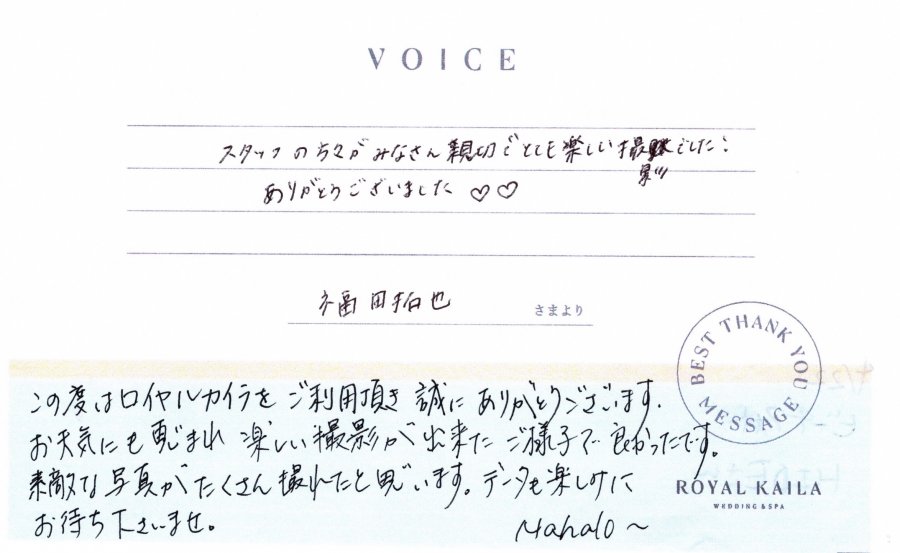 VOICE
スタッフの方々がみなさん親切でとても楽しい撮影でした!
ありがとうございました♡♡
福田拓也 さまより
BEST THANK YOU MESSAGE
この度はロイヤルカイラをご利用頂き誠にありがとうございます.
お天気にも恵まれ楽しい撮影が出来たご様子で良かったです。
素敵な写真がたくさん撮れたと思います。データも楽しみに
お待ち下さいませ。
Mahalo~
ROYAL KAILA
WEDDING & SPA